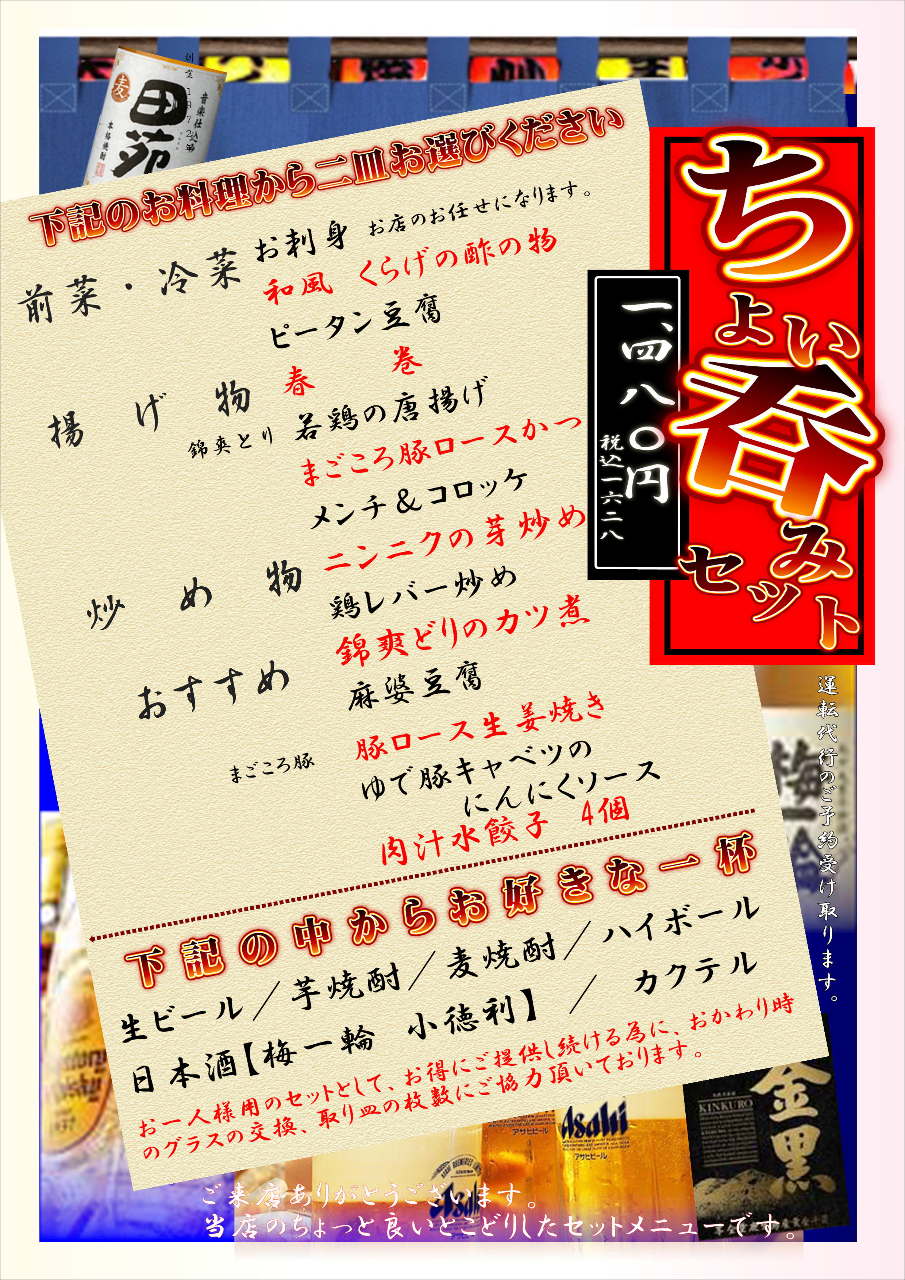 田苑
音楽仕込み
本格焼酎
ちょい呑み
セット
一、四八〇円
税込一六二八
下記のお料理から二皿お選びください
前菜・冷菜
お刺身 お店のお任せになります。
和風 くらげの酢の物
ピータン豆腐
揚げ物
春巻
錦爽とり 若鶏の唐揚げ
まごころ豚ロースかつ
メンチ＆コロッケ
炒め物
ニンニクの芽炒め
鶏レバー炒め
おすすめ
錦爽どりのカツ煮
麻婆豆腐
まごころ豚 豚ロース生姜焼き
ゆで豚キャベツの
にんにくソース
肉汁水餃子 4個
下記の中からお好きな一杯
生ビール／芋焼酎／麦焼酎／ハイボール
日本酒【梅一輪 小徳利】 ／ カクテル
お一人様用のセットとして、お得にご提供し続ける為に、おかわり時
のグラスの交換、取り皿の枚数にご協力頂いております。
運転代行のご予約受け取ります。
梅一
KINKURO
金黒
Asahi
アサヒビール
ご来店ありがとうございます。
当店のちょっと良いとこどりしたセットメニューです。